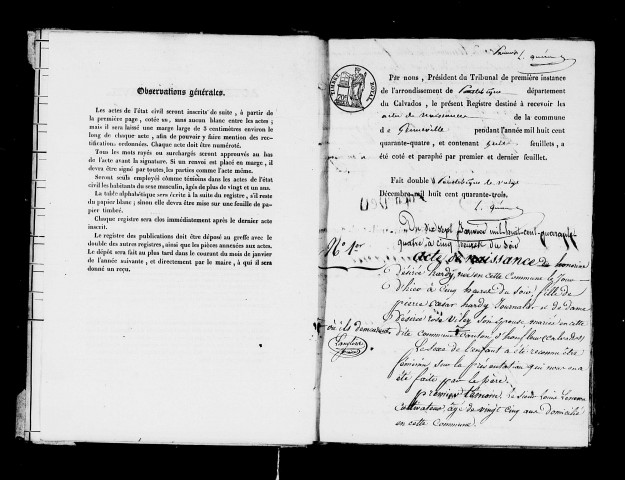 Observations générales.
Les actes de l'état civil seront inscrits de suite, à partir de
la première page, cotée un, sans aucun blanc entre les actes;
mais il sera laissé une marge large de 3 centimètres environ le
long de chaque acte, afin de pouvoir y faire mention des rec-
tifications ordonnées. Chaque acte doit être numéroté.
Tous les mots rayés ou surchargés seront approuvés au bas
de l'acte avant la signature. Si un renvoi est placé en marge, il
devra être signé par toutes les parties comme l'acte même.
Seront seuls employés comme témoins dans les actes de l'état
civil les habitants du sexe masculin, âgés de plus de vingt et un ans.
La table alphabétique sera écrite à la suite, s'il y a du reste
du papier blanc; sinon elle devra être mise sur une feuille de pa-
pier timbré.
Chaque registre sera clos immédiatement après le dernier acte
inscrit.
Le registre des publications doit être déposé au greffe avec le
double des autres registres, ainsi que les pièces annexées aux actes.
Le dépôt sera fait au plus tard dans le courant du mois de janvier
de l'année suivante, et directement par le maire, à qui il sera
donné un reçu.
TIMBRE ROYAL
Par nous, Président du Tribunal de première instance
de l'arrondissement de Pont-l'Evêque département
du Calvados, le présent Registre destiné à recevoir les
actes de naissance de la commune
de pendant l'année mil huit cent
quarante-quatre, et contenant feuillets, a
été coté et paraphé par premier et dernier feuillet.
Fait double à Pont-l'Evêque
Décembre mil huit cent quarante-trois.
N° 1er
Du dix sept Janvier mil huit cent quarante
quatre à cinq heures du soir
acte de naissance de
désirée hardy, née en cette Commune le Jour
d'hier à cinq heures du soir, fille de
pierre César hardy Journalier et de dame
désirée son épouse, mariés en cette
où ils demeurent
dite Commune Canton d'honfleur (Calvados)
Le sexe de l'enfant a été reconnu être
féminin sur la présentation qui nous en a
été faite par le père.
premier témoin, Le Sieur Louis
Cultivateur, âgé de vingt cinq ans domicilié
en cette Commune.